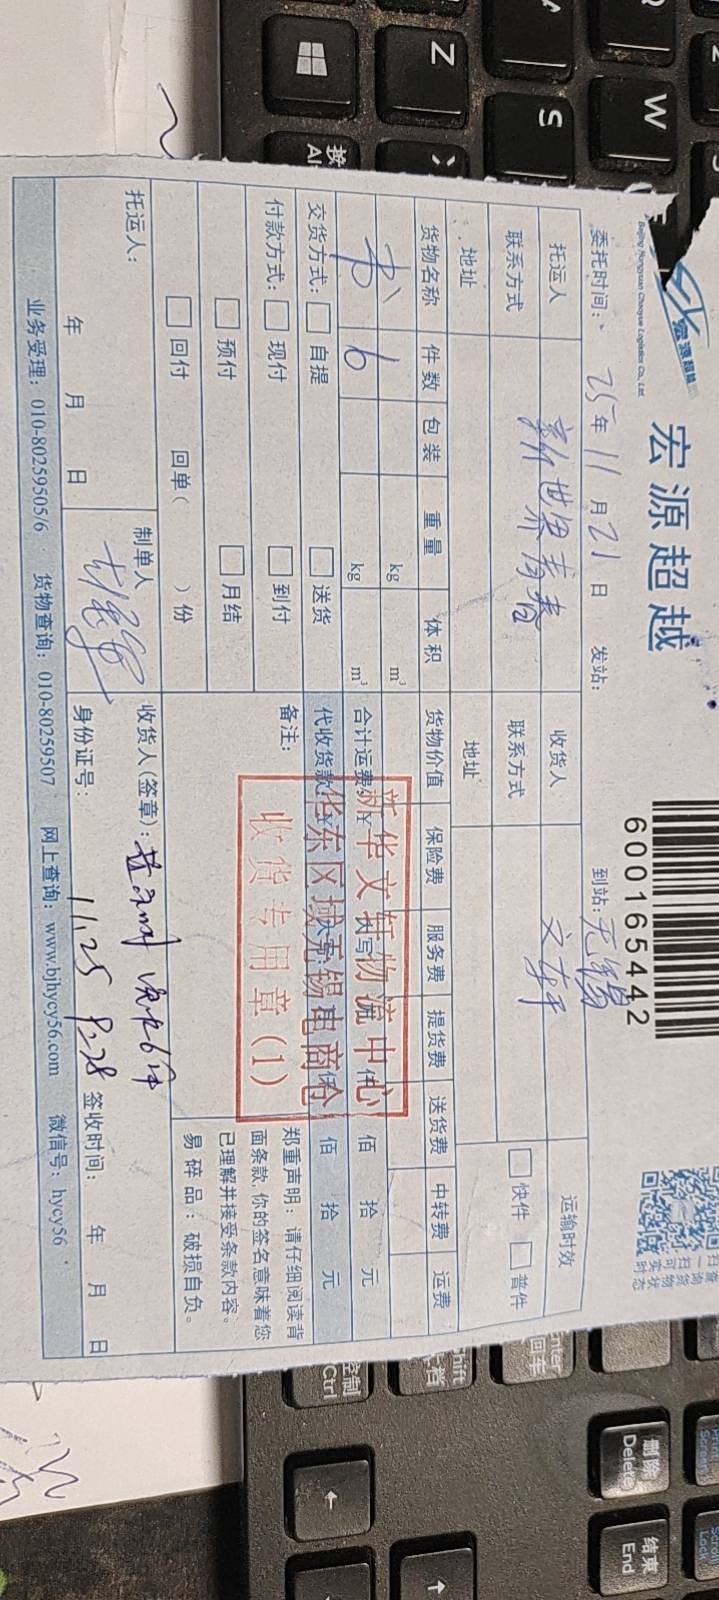 宏源超越
宏源超越
Beijing Hongyuan Chaoyue Logistics Co., Ltd.
600165442
委托时间: 25年 11月 21日 发站: 到站: 无锡
托运人 新世界青春 收货人 文轩 运输时效
联系方式 联系方式 快件 普件
地址 地址
货物名称 件数 包装 重量 体积 货物价值 保险费 服务费 提货费 送货费 中转费 运费
书 6 kg m³
kg m³
合计运费 ¥ 大写 仟 佰 拾 元
交货方式: 自提 送货 代收货款 ¥ 佰 拾 元
付款方式: 现付 到付 备注:
预付 月结
回付 回单( )份
新华文轩物流中心
华东区域无锡电商仓
收货专用章(1)
郑重声明:请仔细阅读背
面条款,你的签名意味着您
已理解并接受条款内容。
易碎品:破损自负。
托运人: 制单人 收货人(签章):
年 月 日 身份证号: 11.25 签收时间: 年 月 日
业务受理: 010-80259505/6 货物查询: 010-80259507 网上查询: www.bjhycy56.com 微信号: hycy56
Z
W
S
Q
换
Alt
Enter
回车
Shift
控制
Ctrl
删除
Delete
结束
End
Scroll
Lock
Print
Screen